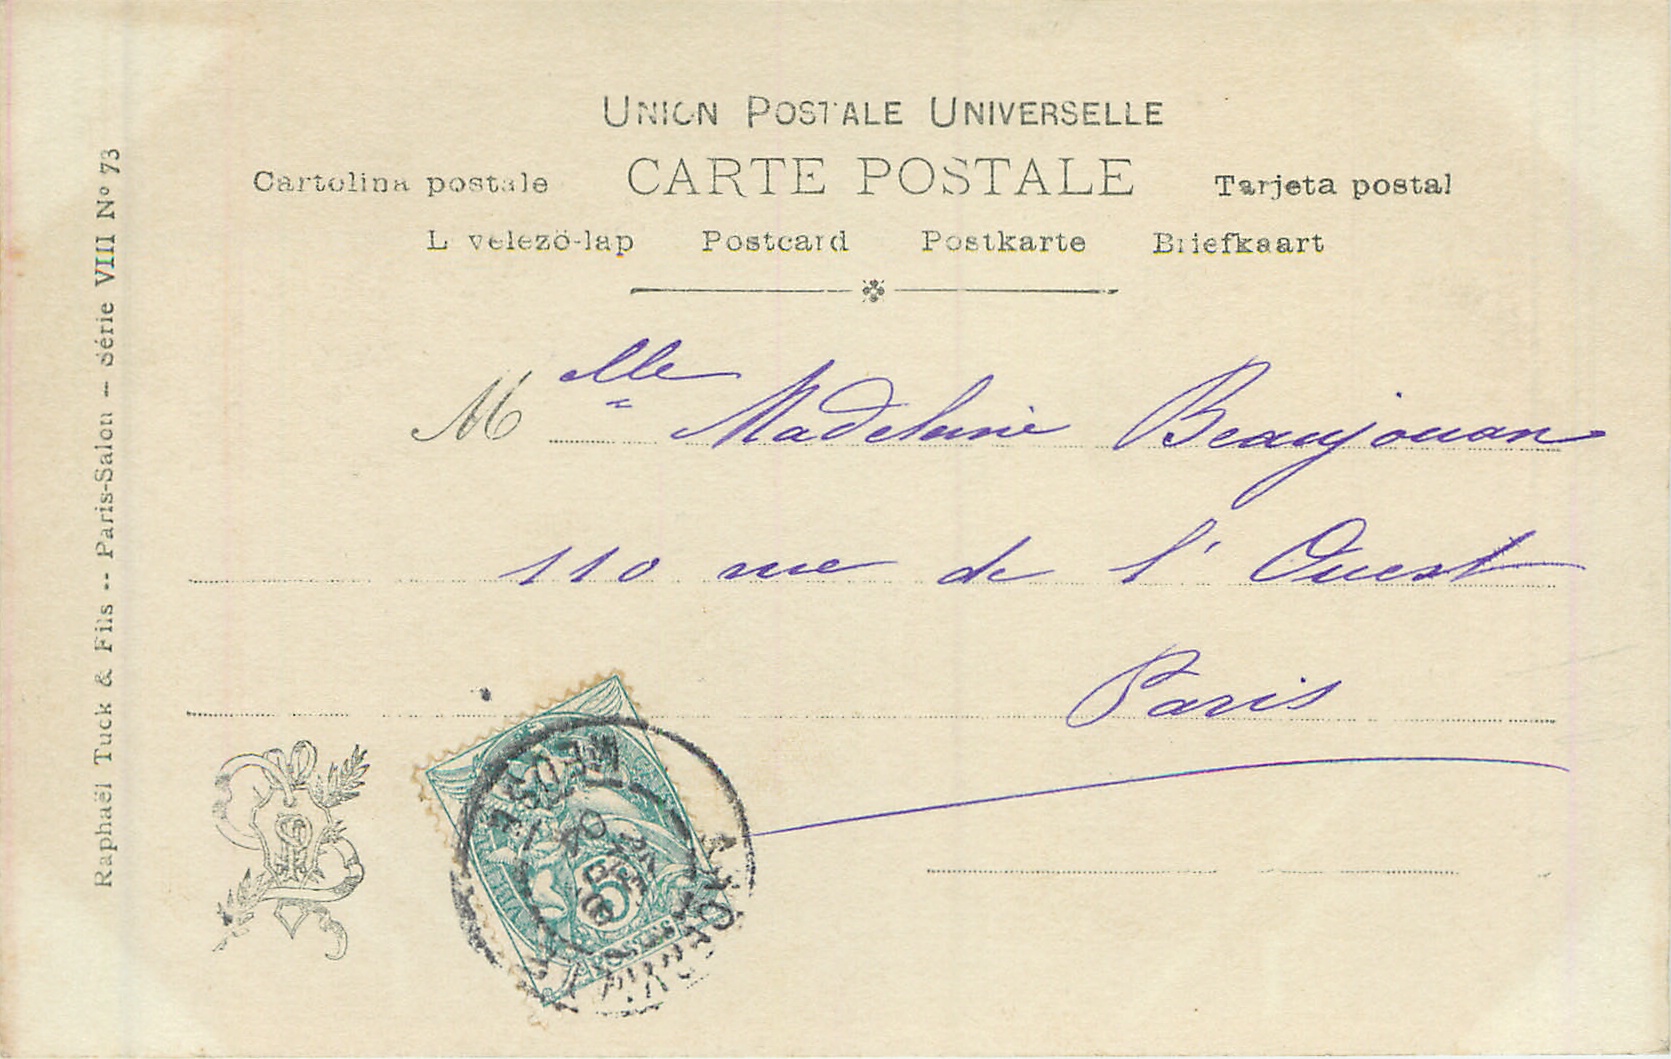 UNION POSTALE UNIVERSELLE
Cartolina postale CARTE POSTALE Tarjeta postal
Levelezö-lap Postcard Postkarte Briefkaart
Mlle Madeleine Beaujouan
110 rue de l'Ouest
Paris
Raphaël Tuck & Fils -- Paris-Salon — Série VIII N° 73
MEUSE
5
POSTES